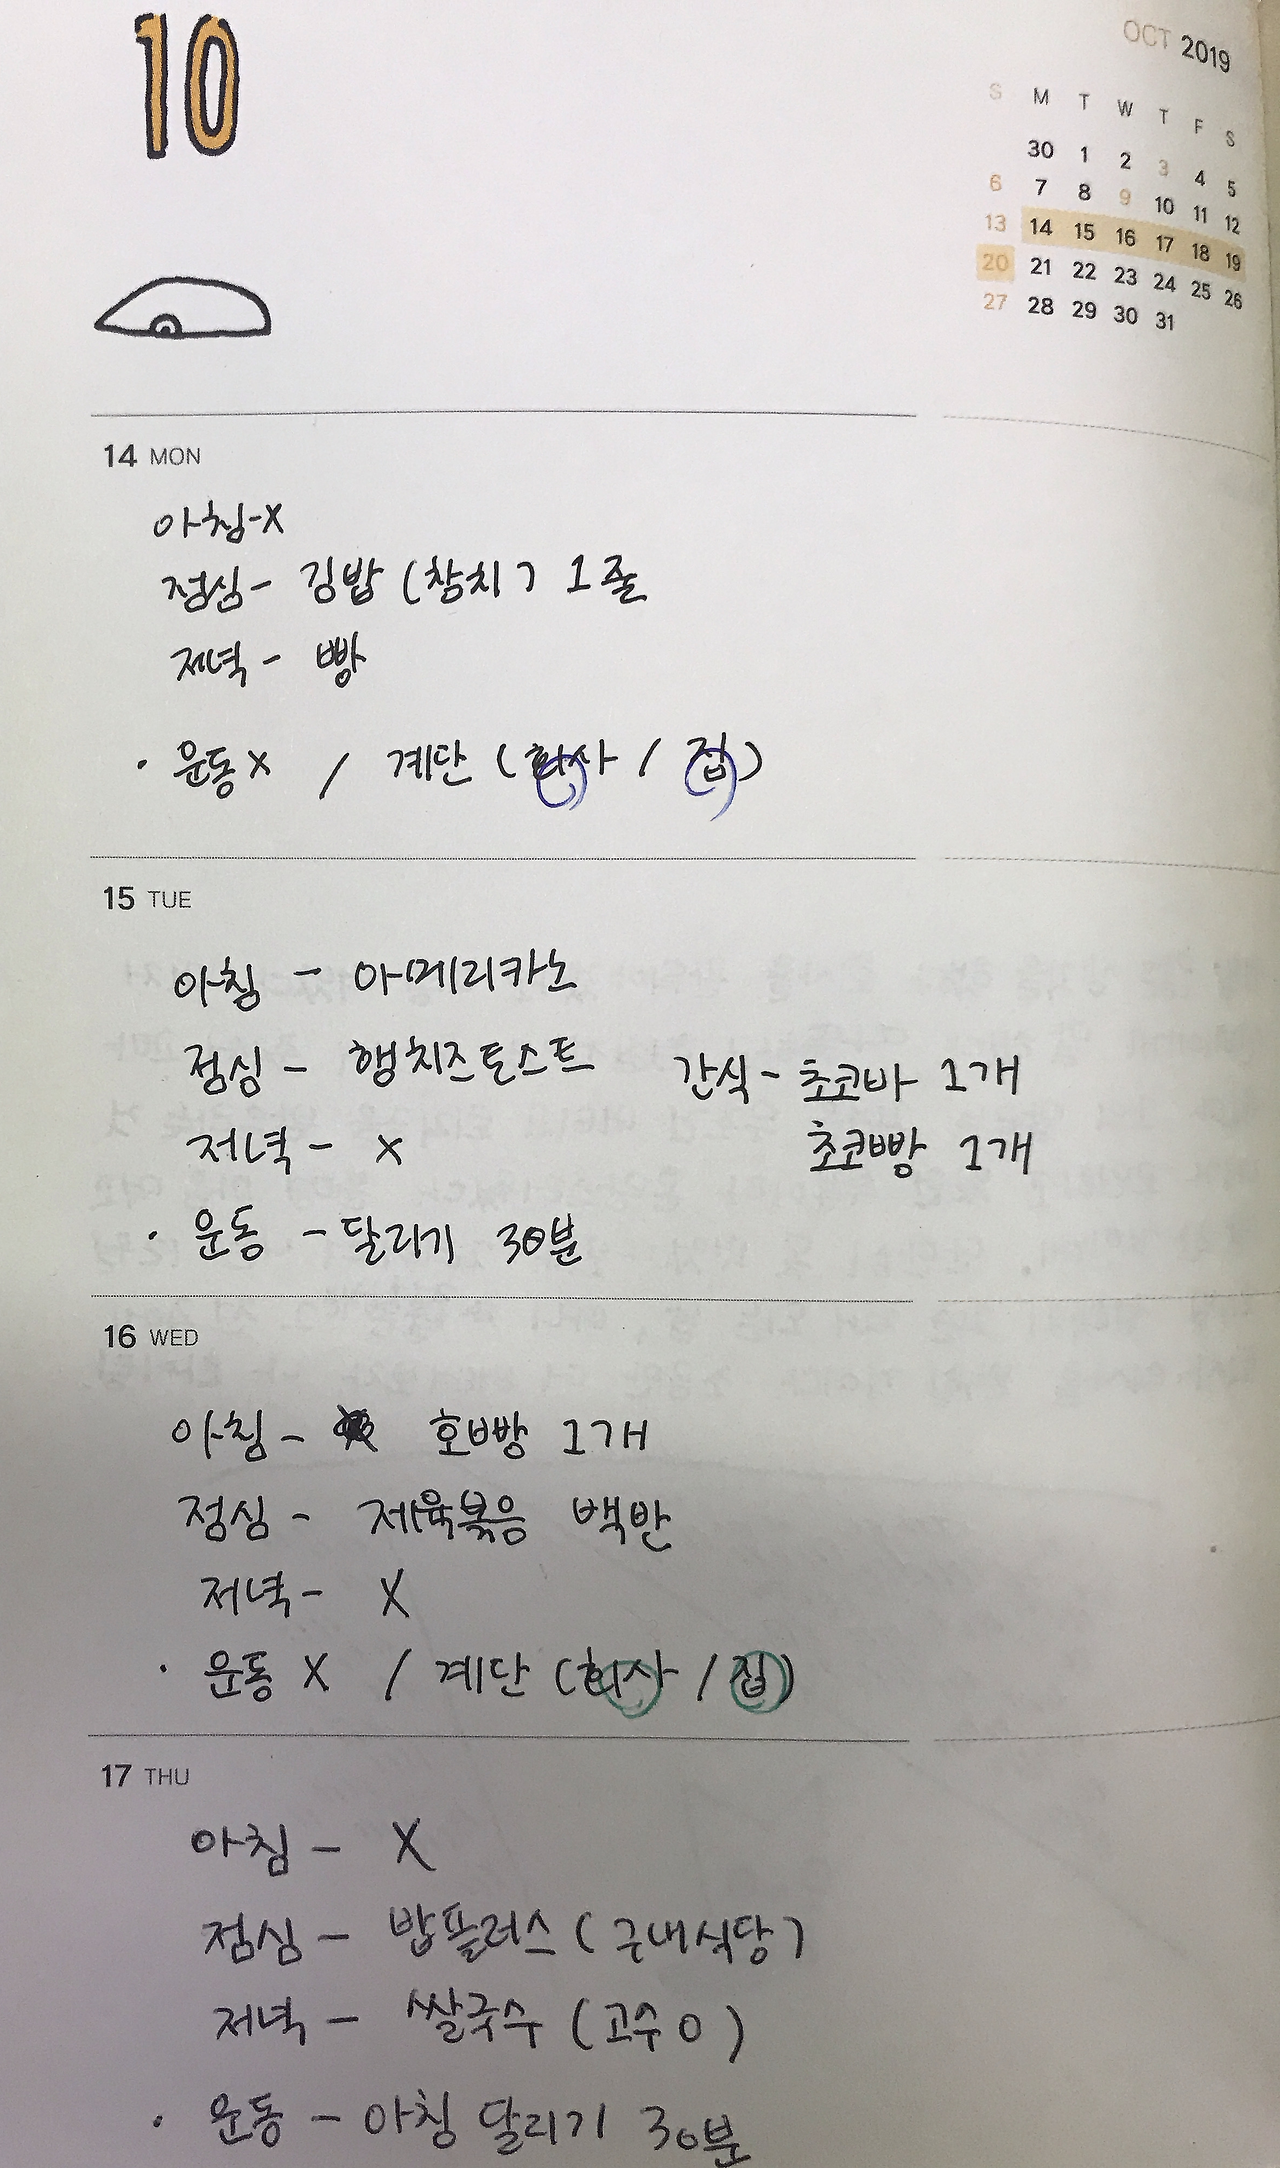 10
OCT 2019
S M T W T F S
30 1 2 3 4 5
6 7 8 9 10 11 12
13 14 15 16 17 18 19
20 21 22 23 24 25 26
27 28 29 30 31
14 MON
아침-X
점심- 김밥 (참치) 1줄
저녁- 빵
· 운동X / 계단 (회사 / 집)
15 TUE
아침 - 아메리카노
점심 - 햄치즈토스트 간식- 초코바 1개
저녁- X 초코빵 1개
· 운동 -달리기 30분
16 WED
아침- 호빵 1개
점심- 제육볶음 백반
저녁- X
· 운동 X / 계단 (회사 / 집)
17 THU
아침 - X
점심- 밥플러스 (구내식당)
저녁- 쌀국수 (고수 O)
· 운동 - 아침 달리기 30분